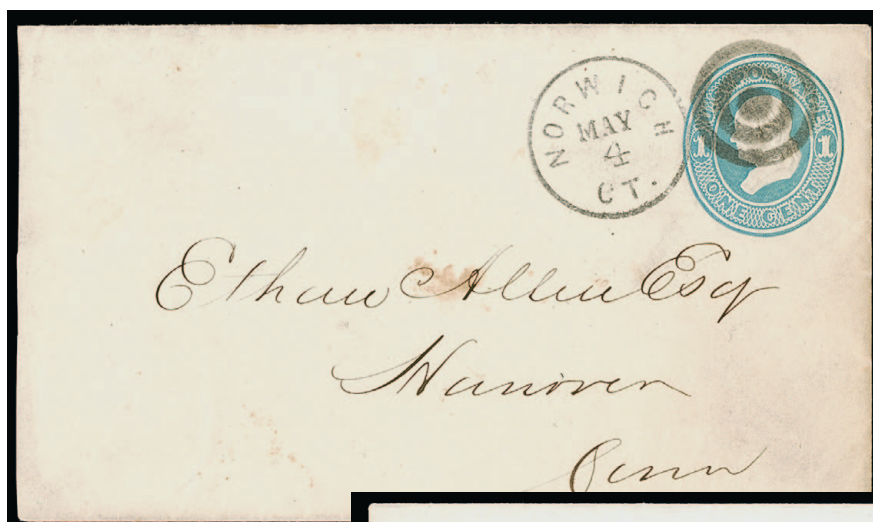 NORWICH
MAY
4
CT.
POSTAGE
1 1
ONE CENT
Ethan Allen Esq
Hanover
Conn